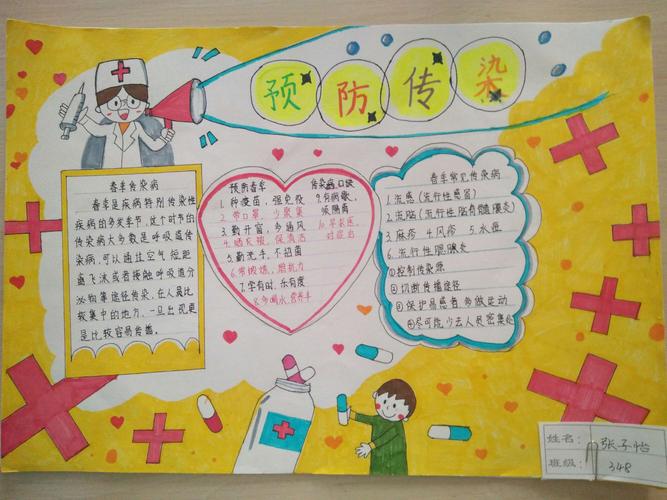 预防传染
春季传染病
春季是疾病特别传染性
疾病的多发季节,这个时节的
传染病大多数是呼吸道传
染病,可以通过空气短距
离飞沫或者接触呼吸道分
泌物等途径传染,在人员比
较集中的地方,一旦出现更
是比较容易传播。
预防春季
传染病口诀
1.种疫苗,强免疫
2.带口罩,少聚集
3.勤开窗,多通风
4.晒衣被,保清洁
5.勤洗手,不招菌
6.常锻炼,磨抵力
7.学有时,乐有度
8.多喝水,营养丰
9.有病歇,
候隔离
10.早就医,
对症治
春季常见传染病
1.流感(流行性感冒)
2.流脑(流行性脑脊髓膜炎)
3.麻疹 4.风疹 5.水痘
6.流行性腮腺炎
①控制传染源
②切断传播途径
③保护易感者 多做运动
④尽可能少去人员密集处
姓名: 张子怡
班级: 348